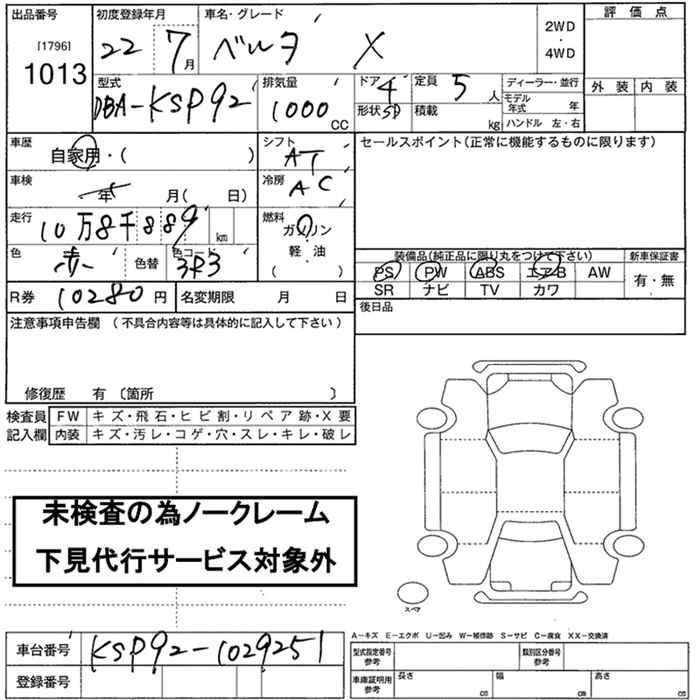 出品番号 初度登録年月 車名・グレード 2WD ・ 4WD 評価点
[1796]
1013 22 7月 ベルタ X
外装 内装
型式 排気量 ドア 4 定員 5人 ディーラー・並行
DBA-KSP92 1000cc 形状 SD 積載 kg モデル年式 年
ハンドル 左・右
車歴 自家用・( ) シフト AT セールスポイント(正常に機能するものに限ります)
車検 年 月( 日) 冷房 AC
走行 10万8千889 km 燃料 ガソリン
軽・油
( )
色 赤 色替 色コード 3R3
装備品(純正品に限り丸をつけて下さい) 新車保証書
PS PW ABS エアB AW 有・無
SR ナビ TV カワ
R券 10280円 名変期限 月 日 後日品
注意事項申告欄 (不具合内容等は具体的に記入して下さい)
修復歴 有〔箇所 〕
検査員 FW キズ・飛石・ヒビ割・リペア跡・X要
記入欄 内装 キズ・汚レ・コゲ・穴・スレ・キレ・破レ
未検査の為ノークレーム
下見代行サービス対象外
スペア
A-キズ E-エクボ U-凹み W-補修跡 S-サビ C-腐食 XX-交換済
車台番号 KSP92-1029251
型式指定番号 参考 類別区分番号 参考
登録番号
車庫証明用 参考 長さ cm 幅 cm 高さ cm